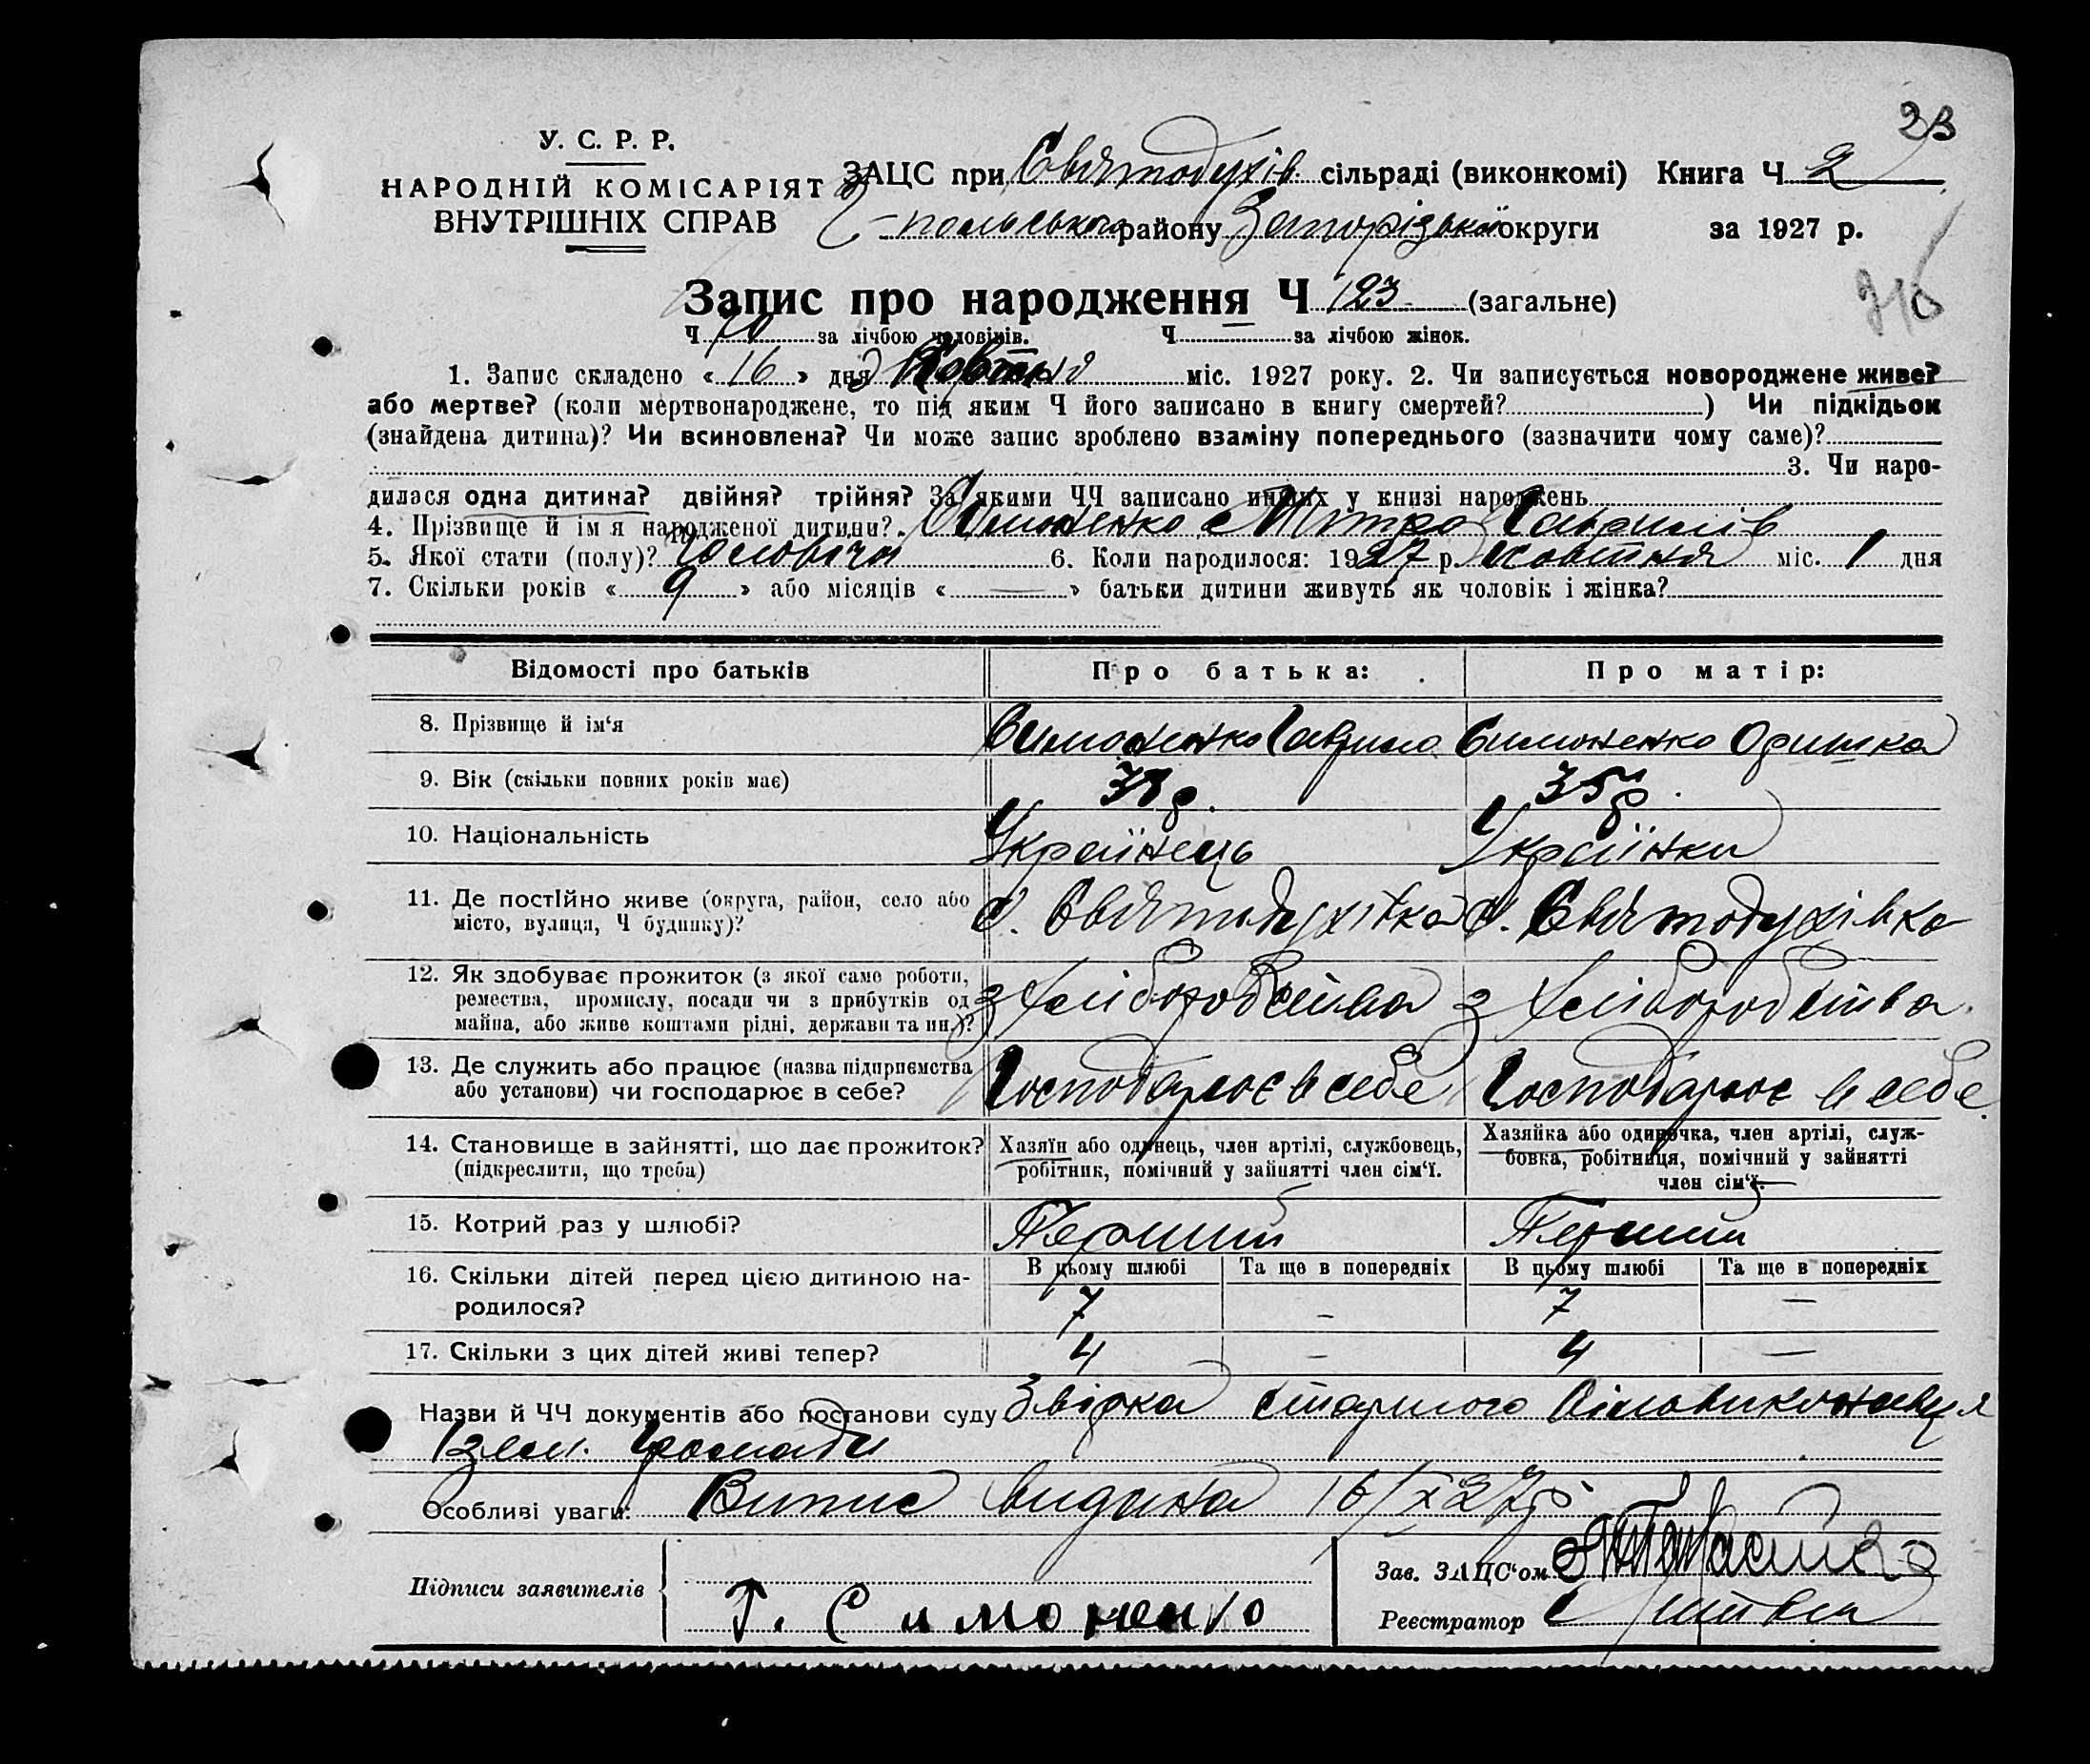 23
У. С. Р. Р.
НАРОДНІЙ КОМІСАРІЯТ
ВНУТРІШНІХ СПРАВ
ЗАЦС при Святодухів сільраді (виконкомі) Книга Ч 2
-польського району Запорізької округи за 1927 р.
Запис про народження Ч 123 (загальне)
Ч 70 за лічбою чоловіків. Ч за лічбою жінок.
1. Запис складено « 16 » дня Жовтня міс. 1927 року. 2. Чи записується новороджене живе?
або мертве? (коли мертвонароджене, то під яким Ч його записано в книгу смертей? ) Чи підкідьок
(знайдена дитина)? Чи всиновлена? Чи може запис зроблено взаміну попереднього (зазначити чому саме)?
3. Чи наро-
дилася одна дитина? двійня? трійня? За якими ЧЧ записано инших у книзі народжень
4. Прізвище й ім я народженої дитини? Симоненко Митро Гаврилів
5. Якої стати (полу)? Чоловічи 6. Коли народилося: 1927 р. Жовтня міс. 1 дня
7. Скільки років « 9 » або місяців « — » батьки дитини живуть як чоловік і жінка?
Відомості про батьків Про батька: Про матір:
8. Прізвище й ім‘я Симоненко Гаврило Симоненко Оришка
9. Вік (скільки повних років має) 38 р. 35 р.
10. Національність Українець Українка
11. Де постійно живе (округа, район, село або
місто, вулиця, Ч будинку)? С. Святодухівка С. Святодухівка
12. Як здобуває прожиток (з якої само роботи,
ремества, промислу, посади чи з прибутків од
майна, або живе коштами рідні, держави та ин.)? З Хліборобства З Хліборобства
13. Де служить або працює (назва підприємства
або установи) чи господарює в себе? Господарює в себе Господарює в себе
14. Становище в зайнятті, що дає прожиток?
(підкреслити, що треба)
Хазяїн або одинець, член артілі, службовець,
робітник, помічний у зайнятті член сім‘ї.
Хазяйка або одиночка, член артілі, служ-
бовка, робітниця, помічний у зайнятті
член сім‘ї.
15. Котрий раз у шлюбі? Перший Перший
В цьому шлюбі Та ще в попередніх В цьому шлюбі Та ще в попередніх
16. Скільки дітей перед цією дитиною на-
родилося? 7 – 7 —
17. Скільки з цих дітей живі тепер? 4 – 4 —
Назви й ЧЧ документів або постанови суду Звірка старшого Сільвиконавця
Зем. Громади
Особливі уваги: Випис видана 16/X 27 р
Підписи заявителів
Г. Симоненко
Зав. ЗАЦС‘ом
Реєстратор